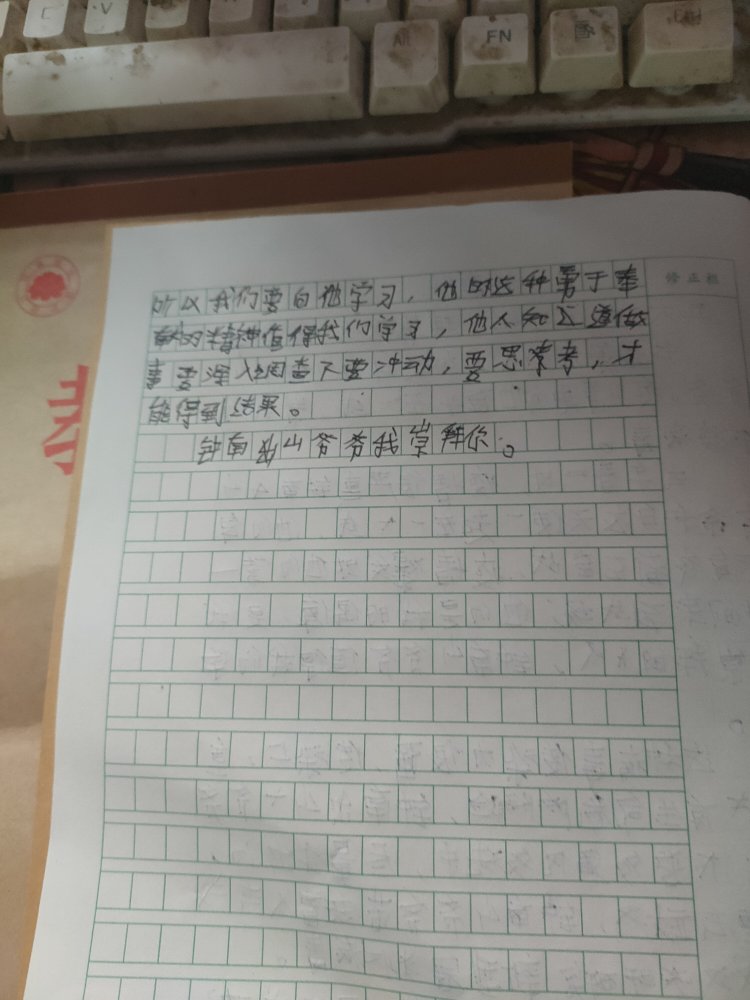 C V Alt FN Ctrl
修正栏
所以我们要向他学习，他的这种勇于奉
献的精神值得我们学习，他人知道做
事要深入调查不要冲动，要思常考，才
能得到结果。
钟南山爷爷我崇拜你。